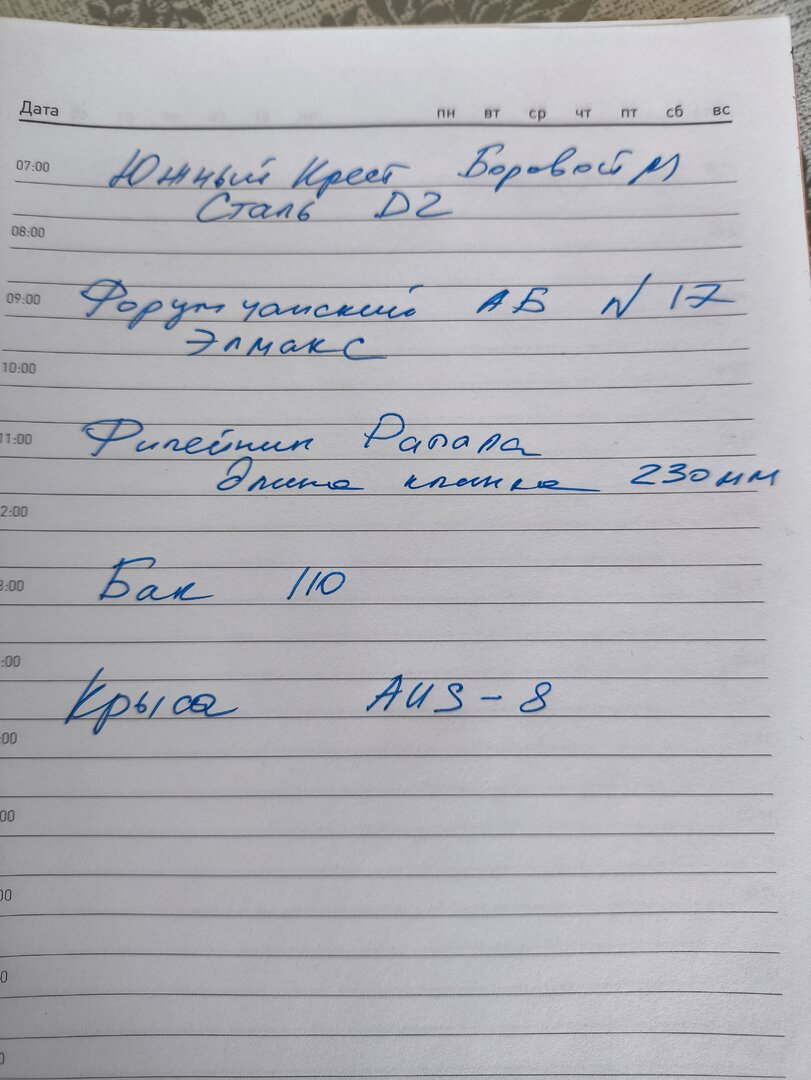 Дата пн вт ср чт пт сб вс
07:00 Южный Крест Боровой М
Сталь D2
08:00
09:00 Форумчанский АБ N 17
Элмакс
10:00
11:00 Филейник Рапала
длина клинка 230 мм
2:00
3:00 Бак 110
:00
Крыса AUS-8
:00
00
00
0
0